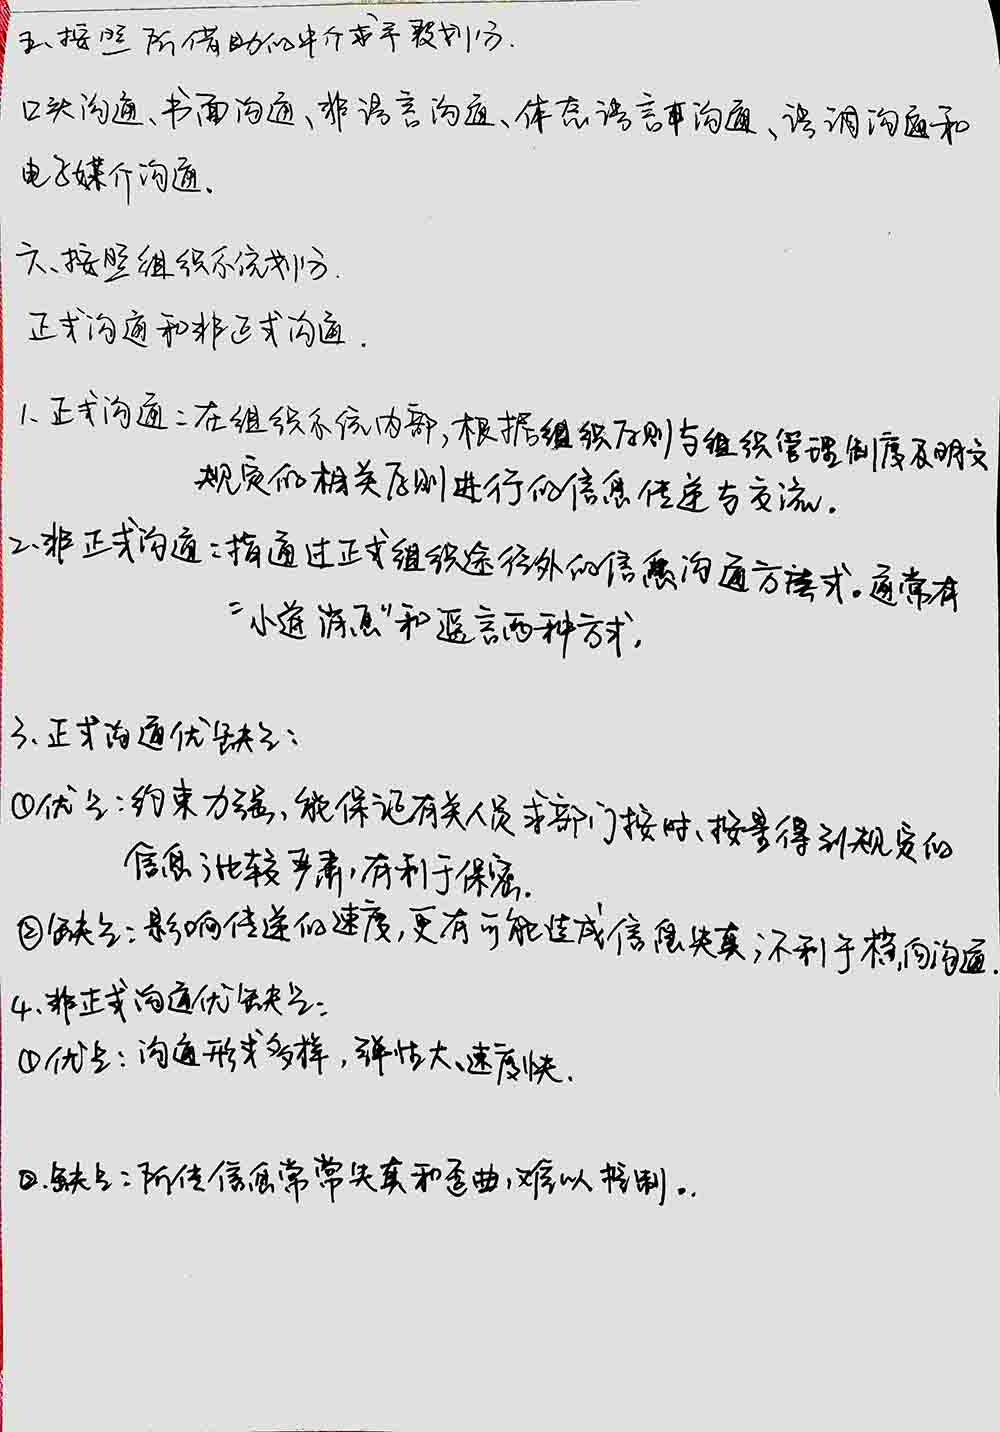 五、按照所借助的中介或手段划分.
口头沟通、书面沟通、非语言沟通、体态语言沟通、语调沟通和
电子媒介沟通.
六、按照组织系统划分.
正式沟通和非正式沟通.
1、正式沟通:在组织系统内部,根据组织原则与组织管理制度及明文
规定的相关原则进行的信息传递与交流.
2、非正式沟通:指通过正式组织途径外的信息沟通方式。通常有
“小道消息”和谣言两种方式.
3、正式沟通优缺点:
①优点:约束力强、能保证有关人员或部门按时、按量得到规定的
信息;比较严肃,有利于保密.
②缺点:影响传递的速度,更有可能造成信息失真;不利于横向沟通.
4、非正式沟通优缺点:
①优点:沟通形式多样,弹性大、速度快.
②.缺点:所传信息常常失真和歪曲,难以控制。.